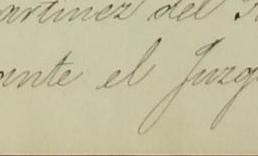 artinez del
ante el Juzg